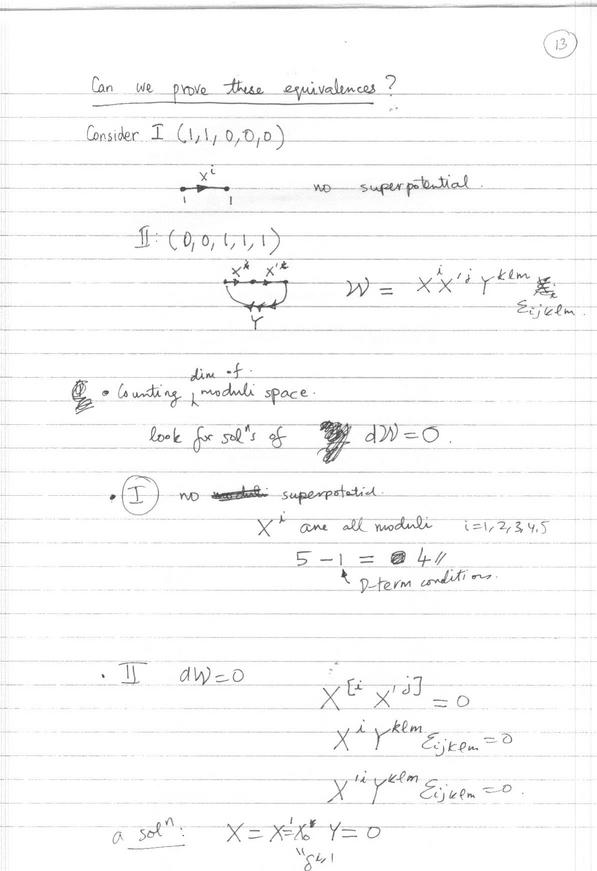 13
Can we prove these equivalences?
Consider I (1,1,0,0,0)
X^i
1 1 no superpotential.
II: (0,0,1,1,1)
X^i X'^i
W = X^i X'^j Y^{klm} ε_{ijklm}.
Y
• Counting dim of moduli space.
look for sol^n's of dW=0.
• I no superpotetial.
X^i are all moduli i=1,2,3,4,5
5 - 1 = 4 //
D-term conditions.
• II dW=0 X^{[i} X'^{j]} = 0
X^i Y^{klm} ε_{ijklm} = 0
X'^i Y^{klm} ε_{ijklm} = 0.
a sol^n: X = X' = X_0 Y = 0